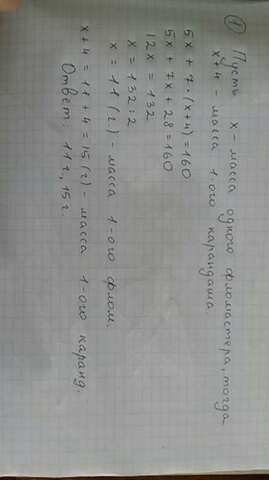 ① Пусть x - масса одного фломастера, тогда
x+4 - масса 1-ого карандаша
5x + 7·(x+4) = 160
5x + 7x + 28 = 160
12x = 132
x = 132:2
x = 11(г) - масса 1-ого флом.
x+4 = 11+4 = 15(г) - масса 1-ого каранд.
Ответ: 11г, 15г